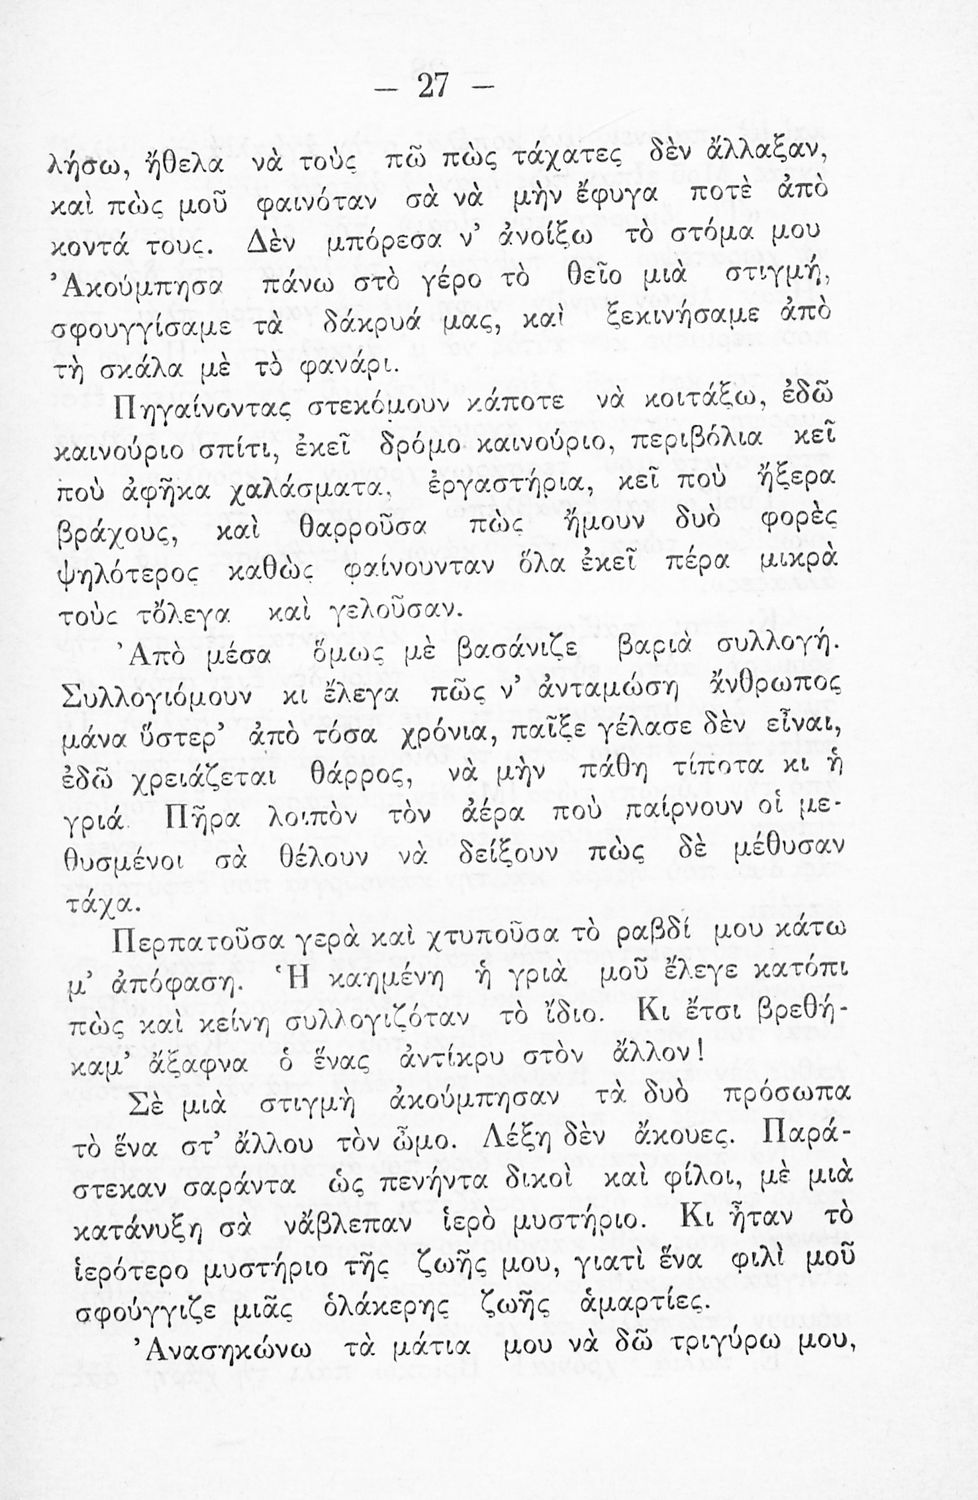 — 27 —
λήσω, ἤθελα νὰ τοὺς πῶ πὼς τάχατες δὲν ἄλλαξαν,
καὶ πὼς μοῦ φαινόταν σὰ νὰ μὴν ἔφυγα ποτὲ ἀπὸ
κοντά τους. Δὲν μπόρεσα ν' ἀνοίξω τὸ στόμα μου
Ἀκούμπησα πάνω στὸ γέρο τὸ θεῖο μιὰ στιγμή,
σφουγγίσαμε τὰ δάκρυά μας, καὶ ξεκινήσαμε ἀπὸ
τὴ σκάλα μὲ τὸ φανάρι.
Πηγαίνοντας στεκόμουν κάποτε νὰ κοιτάξω, ἐδῶ
καινούριο σπίτι, ἐκεῖ δρόμο καινούριο, περιβόλια κεῖ
ποὺ ἀφῆκα χαλάσματα, ἐργαστήρια, κεῖ ποὺ ἤξερα
βράχους, καὶ θαρροῦσα πὼς ἤμουν δυὸ φορὲς
ψηλότερος καθὼς φαίνουνταν ὅλα ἐκεῖ πέρα μικρὰ
τοὺς τὄλεγα καὶ γελοῦσαν.
Ἀπὸ μέσα ὅμως μὲ βασάνιζε βαριὰ συλλογή.
Συλλογιόμουν κι ἔλεγα πῶς ν' ἀνταμώση ἄνθρωπος
μάνα ὕστερ' ἀπὸ τόσα χρόνια, παῖξε γέλασε δὲν εἶναι,
ἐδῶ χρειάζεται θάρρος, νὰ μὴν πάθη τίποτα κι ἡ
γριά. Πῆρα λοιπὸν τὸν ἀέρα ποὺ παίρνουν οἱ με-
θυσμένοι σὰ θέλουν νὰ δείξουν πὼς δὲ μέθυσαν
τάχα.
Περπατοῦσα γερὰ καὶ χτυποῦσα τὸ ραβδί μου κάτω
μ' ἀπόφαση. Ἡ καημένη ἡ γριὰ μοῦ ἔλεγε κατόπι
πὼς καὶ κείνη συλλογιζόταν τὸ ἴδιο. Κι ἔτσι βρεθή-
καμ' ἄξαφνα ὁ ἕνας ἀντίκρυ στὸν ἄλλον!
Σὲ μιὰ στιγμὴ ἀκούμπησαν τὰ δυὸ πρόσωπα
τὸ ἕνα στ' ἄλλου τὸν ὦμο. Λέξη δὲν ἄκουες. Παρά-
στεκαν σαράντα ὡς πενήντα δικοὶ καὶ φίλοι, μὲ μιὰ
κατάνυξη σὰ νἄβλεπαν ἱερὸ μυστήριο. Κι ἦταν τὸ
ἱερότερο μυστήριο τῆς ζωῆς μου, γιατὶ ἕνα φιλὶ μοῦ
σφούγγιζε μιᾶς ὁλάκερης ζωῆς ἁμαρτίες.
Ἀνασηκώνω τὰ μάτια μου νὰ δῶ τριγύρω μου,